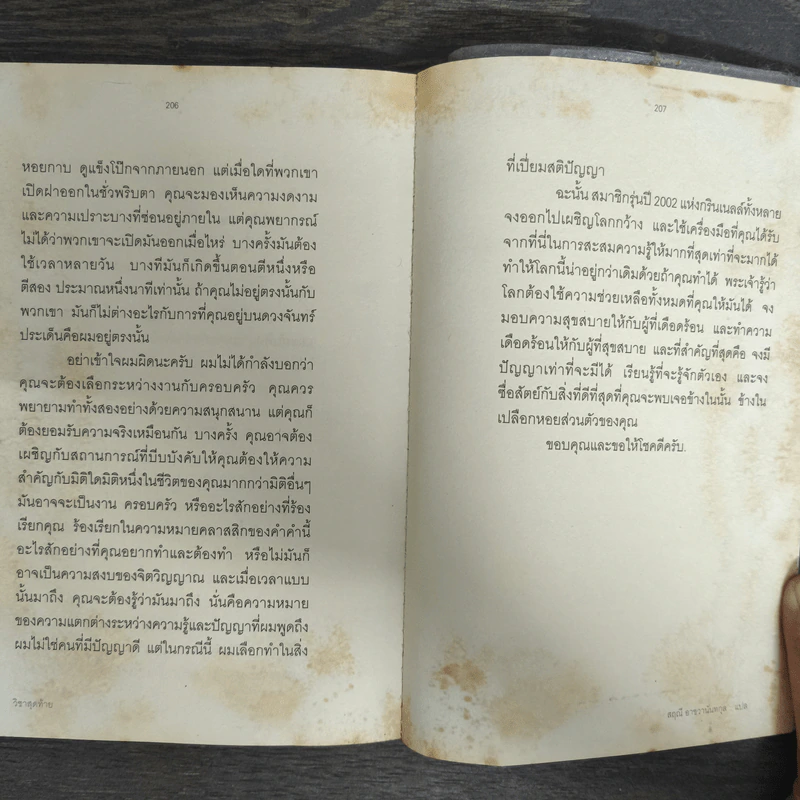 206
หอยกาบ ดูแข็งโป๊กจากภายนอก แต่เมื่อใดที่พวกเขา
เปิดฝาออกในชั่วพริบตา คุณจะมองเห็นความงดงาม
และความเปราะบางที่ซ่อนอยู่ภายใน แต่คุณพยากรณ์
ไม่ได้ว่าพวกเขาจะเปิดมันออกเมื่อไหร่ บางครั้งมันต้อง
ใช้เวลาหลายวัน บางทีมันก็เกิดขึ้นตอนตีหนึ่งหรือ
ตีสอง ประมาณหนึ่งนาทีเท่านั้น ถ้าคุณไม่อยู่ตรงนั้นกับ
พวกเขา มันก็ไม่ต่างอะไรกับการที่คุณอยู่บนดวงจันทร์
ประเด็นคือผมอยู่ตรงนั้น
อย่าเข้าใจผมผิดนะครับ ผมไม่ได้กำลังบอกว่า
คุณจะต้องเลือกระหว่างงานกับครอบครัว คุณควร
พยายามทำทั้งสองอย่างด้วยความสนุกสนาน แต่คุณก็
ต้องยอมรับความจริงเหมือนกัน บางครั้ง คุณอาจต้อง
เผชิญกับสถานการณ์ที่บีบบังคับให้คุณต้องให้ความ
สำคัญกับมิติใดมิติหนึ่งในชีวิตของคุณมากกว่ามิติอื่นๆ
มันอาจจะเป็นงาน ครอบครัว หรืออะไรสักอย่างที่ร้อง
เรียกคุณ ร้องเรียกในความหมายคลาสสิกของคำคำนี้
อะไรสักอย่างที่คุณอยากทำและต้องทำ หรือไม่มันก็
อาจเป็นความสงบของจิตวิญญาณ และเมื่อเวลาแบบ
นั้นมาถึง คุณจะต้องรู้ว่ามันมาถึง นั่นคือความหมาย
ของความแตกต่างระหว่างความรู้และปัญญาที่ผมพูดถึง
ผมไม่ใช่คนที่มีปัญญาดี แต่ในกรณีนี้ ผมเลือกทำในสิ่ง
วิชาสุดท้าย
207
ที่เปี่ยมสติปัญญา
ฉะนั้น สมาชิกรุ่นปี 2002 แห่งกรินเนลล์ทั้งหลาย
จงออกไปเผชิญโลกกว้าง และใช้เครื่องมือที่คุณได้รับ
จากที่นี่ในการสะสมความรู้ให้มากที่สุดเท่าที่จะมากได้
ทำให้โลกนี้น่าอยู่กว่าเดิมด้วยถ้าคุณทำได้ พระเจ้ารู้ว่า
โลกต้องใช้ความช่วยเหลือทั้งหมดที่คุณให้มันได้ จง
มอบความสุขสบายให้กับผู้ที่เดือดร้อน และทำความ
เดือดร้อนให้กับผู้ที่สุขสบาย และที่สำคัญที่สุดคือ จงมี
ปัญญาเท่าที่จะมีได้ เรียนรู้ที่จะรู้จักตัวเอง และจง
ซื่อสัตย์กับสิ่งที่ดีที่สุดที่คุณจะพบเจอข้างในนั้น ข้างใน
เปลือกหอยส่วนตัวของคุณ
ขอบคุณและขอให้โชคดีครับ.
สฤณี อาชวานันทกุล : แปล